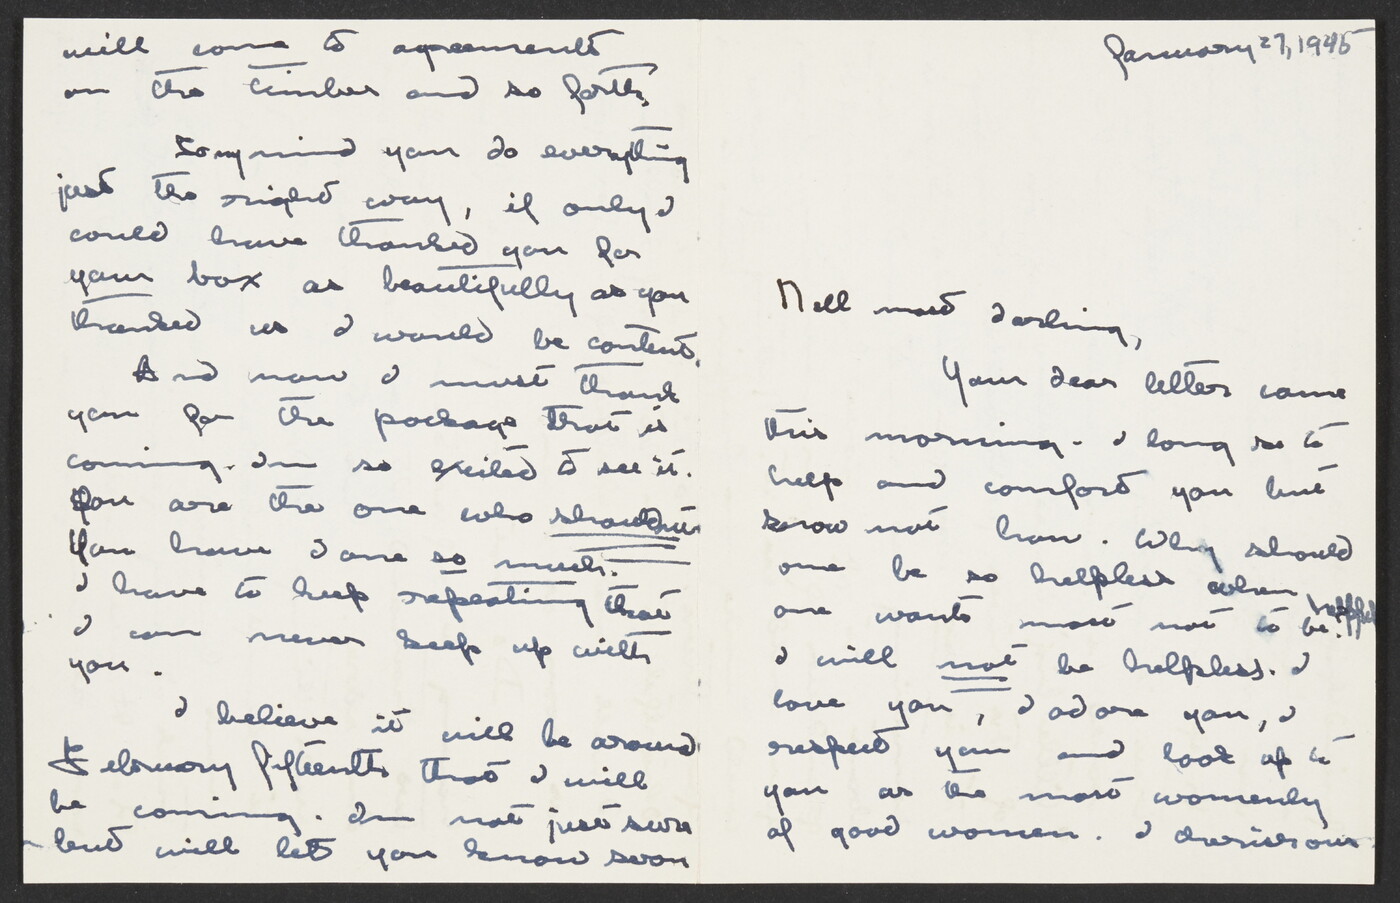 January 27, 1945
Nell most darling,
Your dear letter came
this morning. I long so to
help and comfort you but
know not how. Why should
one be so helpless when
one wants most not to be.
I will not be helpless. I
love you, I adore you, I
respect you and look up to
you as the most womenly
of good women. I our
will come to agreements
on the timber and so forth.
To my mind you do everything
just the right way, if only I
could have thanked you for
your box as beautifully as you
thanked us I would be content.
And now I must thank
you for the package that is
coming. Im so excited to see it.
You are the one who shouldn't.
You have done so much.
I have to keep repeating that
I can never keep up with
you.
I believe it will be around
February fifteenth that I will
be coming. Im not just sure
but will let you know soon